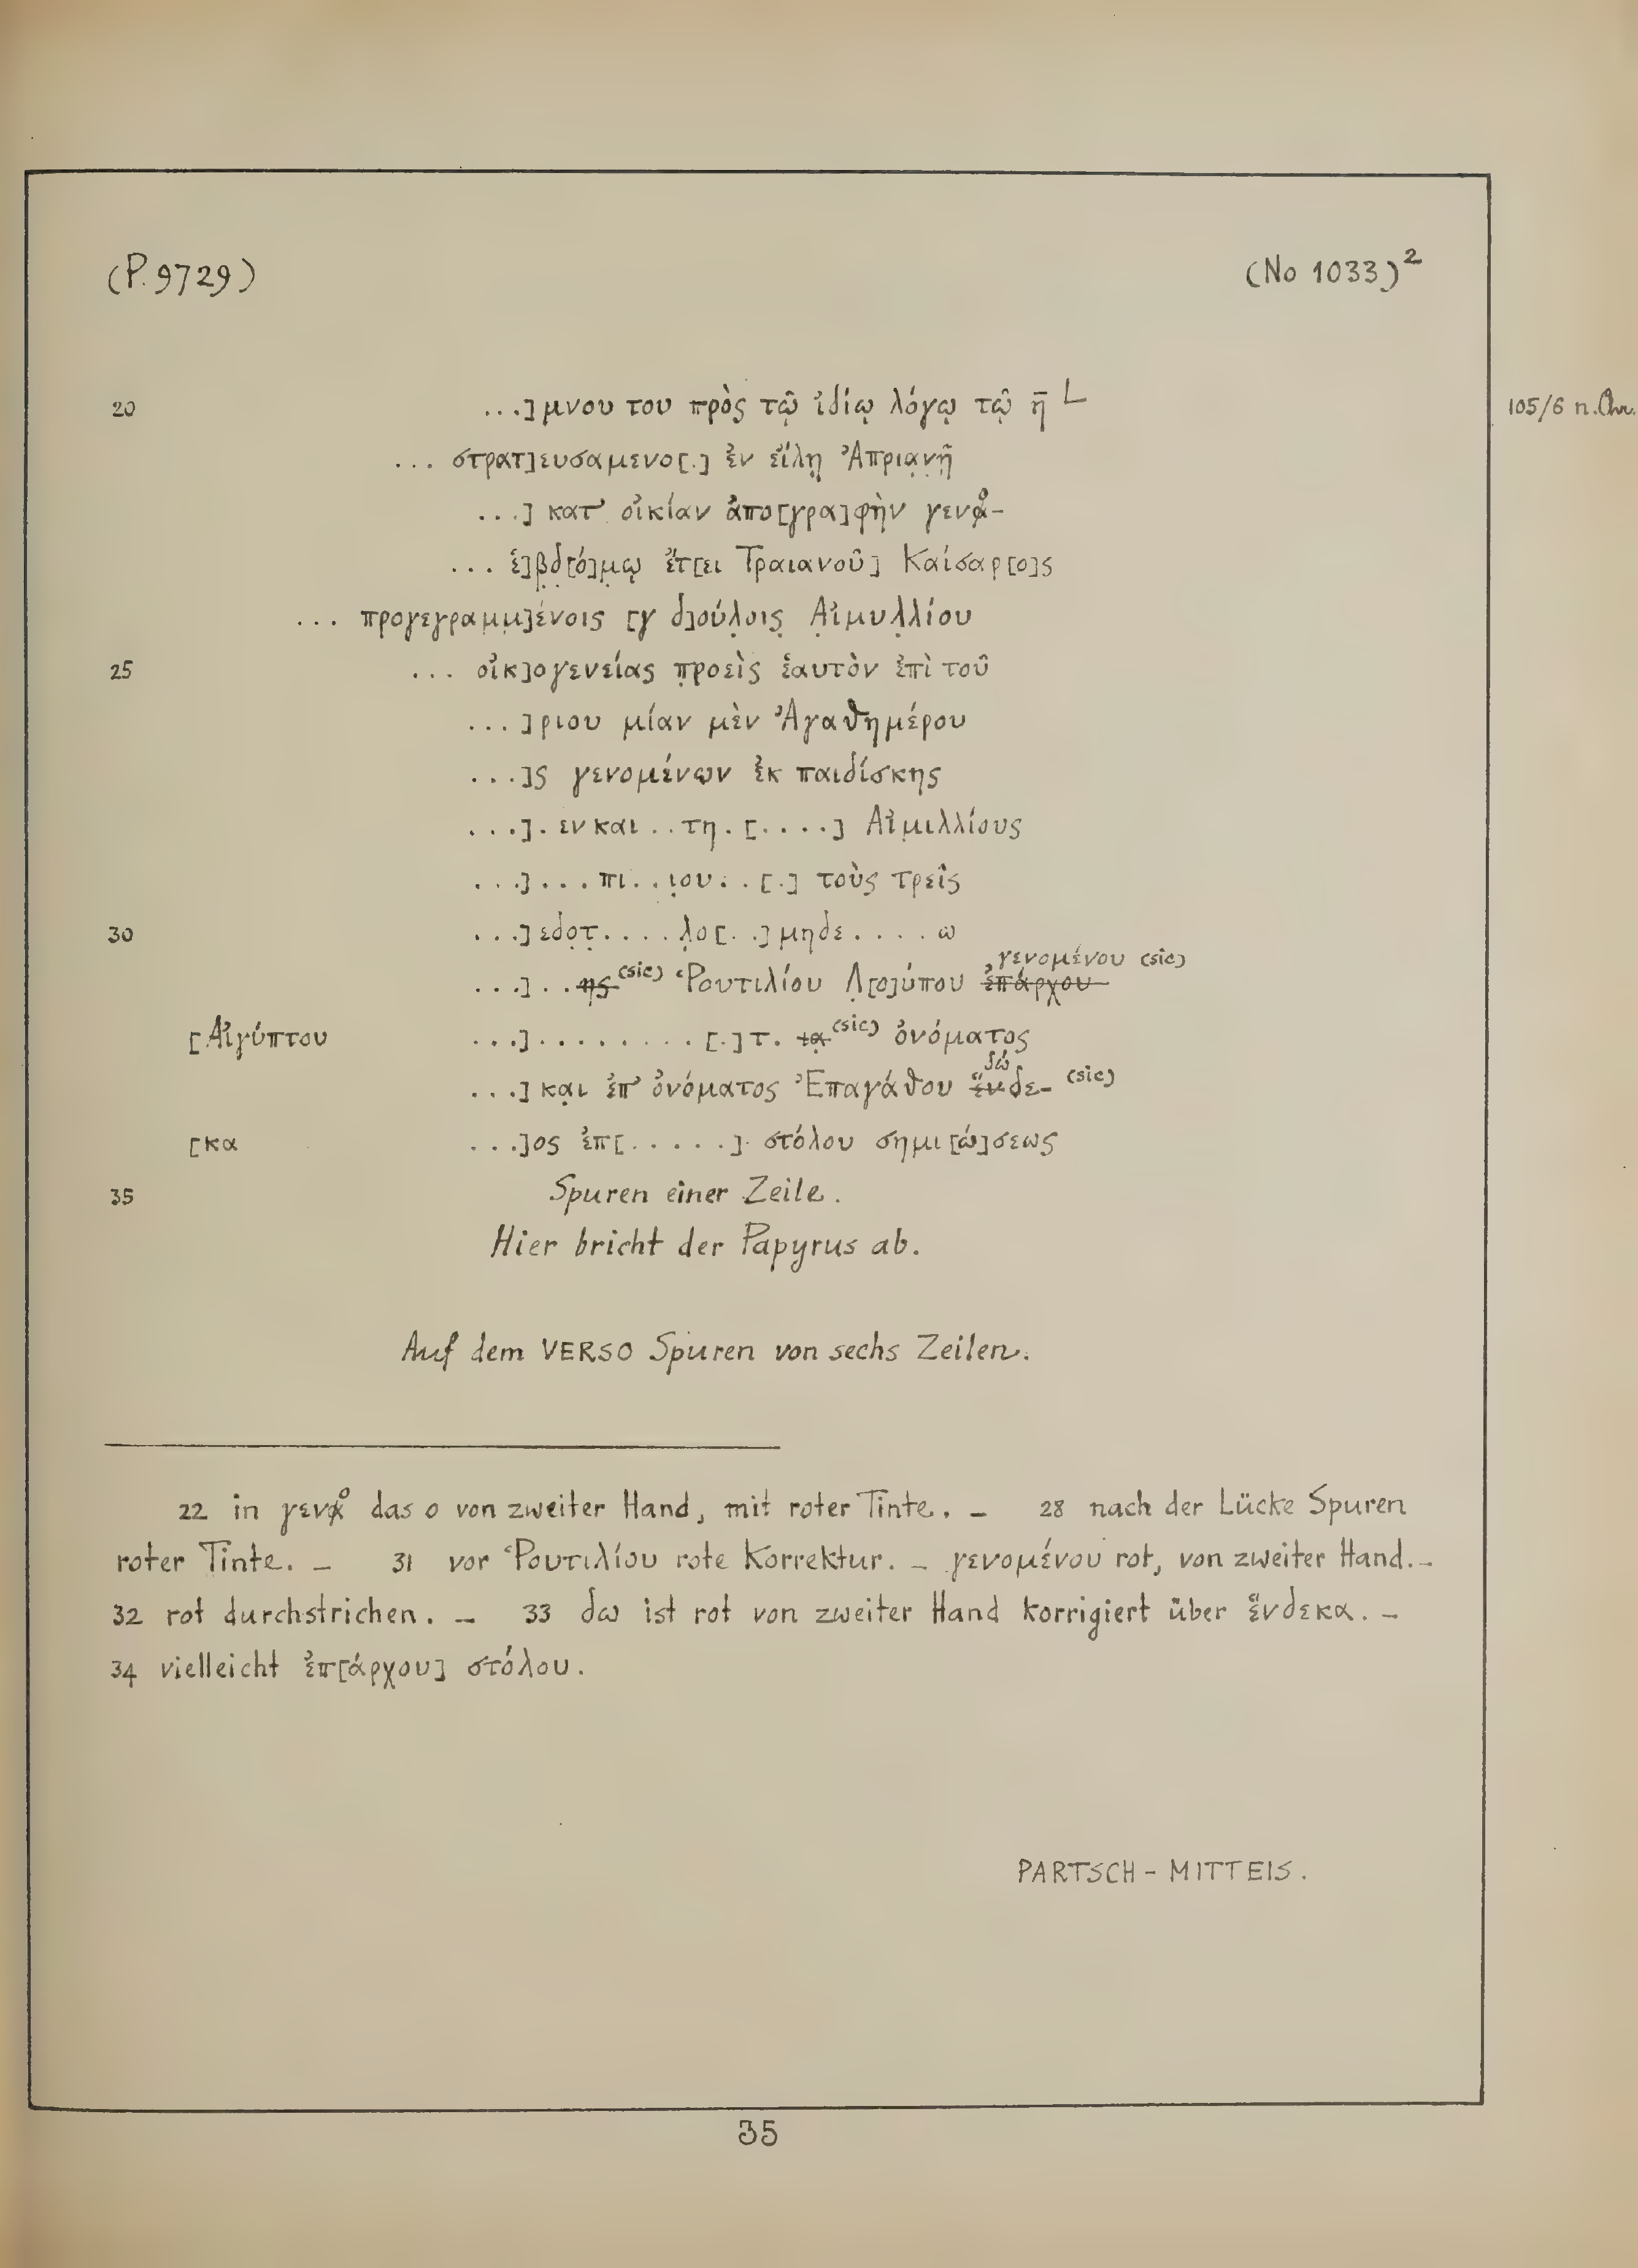 (P. 9729) (No 1033)²
20 ...]μνου του πρὸς τῷ ἰδίῳ λόγῳ τῷ η̄ L 105/6 n. Chr.
... στρατ]ευσαμενο[.] ἐν εἴλῃ Ἀπρια̣ν̣ῇ̣
...] κατ' οἰκίαν ἀπο[γρα]φὴν γενα̶ο-
... ἑ]β̣δ̣[ό]μ̣ῳ ἔτ[ει Τραιανοῦ] Καίσαρ[ο]ς
... προγεγραμμ̣]ένοις [γ δ]ούλ̣οις̣ Α̣ἰμυλ̣λίου
25 ... οἰκ]ογενείας π̣ροεὶς ἑαυτὸν ἐπὶ τοῦ
...]ριου μίαν μὲν Ἀγαθημέρου
...]ς γενομένων ἐκ παιδίσκης
...]. εν και .. τη. [....] Αἰμ̣ιλλίους
...]... πι..ι̣ου..[.] τοὺς τρεῖς
30 ...]εδο̣τ̣....λ̣ο[..]μηδε....ω
γενομένου (sic)
...]..η̶ς̶ (sic) Ῥουτιλίου Λ̣[ο]ύπου ἐ̶π̶ά̶ρ̶χ̶ο̶υ̶
[Αἰγύπτου ...].........[.]τ. τ̶α̶̣ (sic) ὀνόματος
δώ
...] κα̣ι ἐπ' ὀνόματος Ἐπαγάθου ἕ̶ν̶δε- (sic)
[κα ...]ος ἐπ[.....]. στόλου σημι[ώ]σεως
35 Spuren einer Zeile.
Hier bricht der Papyrus ab.
Auf dem VERSO Spuren von sechs Zeilen.
22 in γενα̶ο das ο von zweiter Hand, mit roter Tinte. – 28 nach der Lücke Spuren
roter Tinte. – 31 vor Ῥουτιλίου rote Korrektur. – γενομένου rot, von zweiter Hand. –
32 rot durchstrichen. – 33 δω ist rot von zweiter Hand korrigiert über ἕνδεκα. –
34 vielleicht ἐπ[άρχου] στόλου.
PARTSCH – MITTEIS.
35